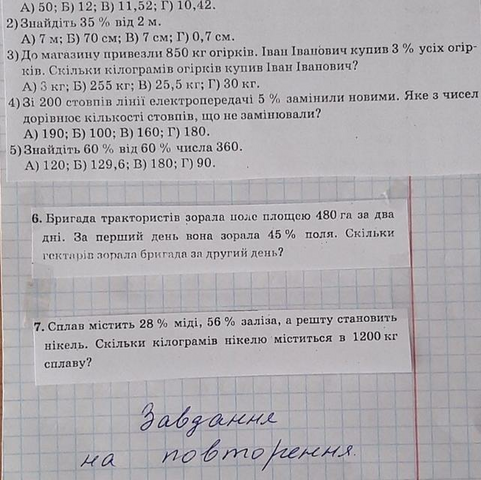 А) 50; Б) 12; В) 11,52; Г) 10,42.
2) Знайдіть 35 % від 2 м.
А) 7 м; Б) 70 см; В) 7 см; Г) 0,7 см.
3) До магазину привезли 850 кг огірків. Іван Іванович купив 3 % усіх огір-
ків. Скільки кілограмів огірків купив Іван Іванович?
А) 3 кг; Б) 255 кг; В) 25,5 кг; Г) 30 кг.
4) Зі 200 стовпів лінії електропередачі 5 % замінили новими. Яке з чисел
дорівнює кількості стовпів, що не замінювали?
А) 190; Б) 100; В) 160; Г) 180.
5) Знайдіть 60 % від 60 % числа 360.
А) 120; Б) 129,6; В) 180; Г) 90.
6. Бригада трактористів зорала поле площею 480 га за два
дні. За перший день вона зорала 45 % поля. Скільки
гектарів зорала бригада за другий день?
7. Сплав містить 28 % міді, 56 % заліза, а решту становить
нікель. Скільки кілограмів нікелю міститься в 1200 кг
сплаву?
Завдання
на повторення.